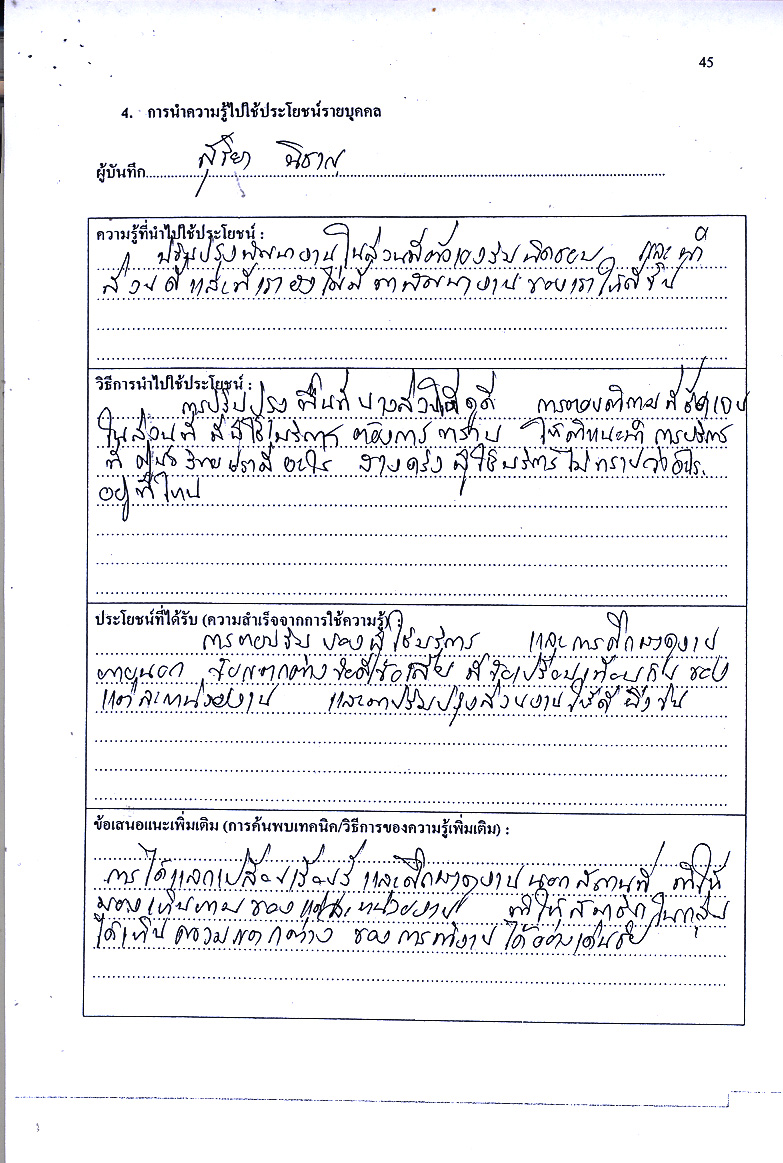 45
4. การนำความรู้ไปใช้ประโยชน์รายบุคคล
ผู้บันทึก สุริยา นิธาน
ความรู้ที่นำไปใช้ประโยชน์ :
ปรับปรุงพัฒนางานในส่วนที่ตัวเองรับผิดชอบ และนำ
ส่วนดี และที่เรายังไม่มี มาพัฒนางานของเราให้ดีขึ้น
วิธีการนำไปใช้ประโยชน์ :
การปรับปรุง พื้นที่บางส่วนให้ดูดี การตอบคำถามที่ชัดเจน
ในส่วนที่ ผู้ใช้บริการ ต้องการ ทราบ ให้คำแนะนำ การบริการ
ที่ เรามี อะไร บางครั้ง ผู้ใช้บริการไม่ทราบว่าอะไร
อยู่ที่ไหน
ประโยชน์ที่ได้รับ (ความสำเร็จจากการใช้ความรู้) :
การตอบรับ ของผู้ใช้บริการ และการศึกษาดูงาน
ภายนอก ข้อแตกต่าง ข้อดีข้อเสีย ที่ เปรียบเทียบกัน ของ
แต่ละหน่วยงาน และมาปรับปรุงส่วนงานให้ดี ยิ่งขึ้น
ข้อเสนอแนะเพิ่มเติม (การค้นพบเทคนิค/วิธีการของความรู้เพิ่มเติม) :
การได้แลกเปลี่ยนเรียนรู้ และศึกษาดูงาน นอกสถานที่ ทำให้
มองเห็นภาพ ของแต่ละหน่วยงาน ทำให้สมาชิกในกลุ่ม
ได้เห็น ความแตกต่าง ของการทำงาน ได้อย่างเด่นชัด